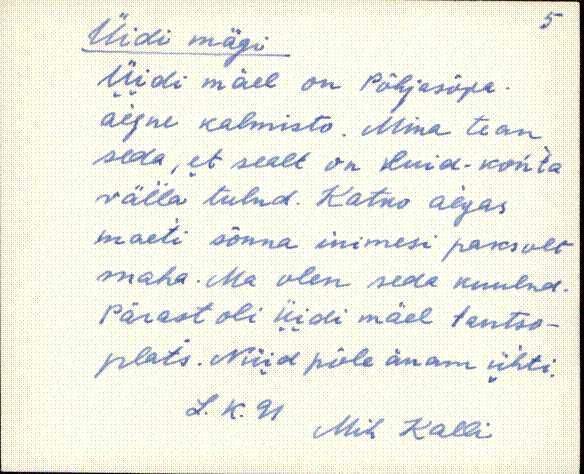 5
Üidi mägi
Üidi mäel on Põhjasõpa-
aigne kalmisto. Mina tean
seda, et sealt on luid-konta
vällä tulnd. Katko aigas
maeti sõnna inimesi paksolt
maha. Ma olen seda kuulnd.
Pärast oli Üidi mäel tantso-
plats. Nüid põle änam ühti.
L. K. 91
Mih Kalli